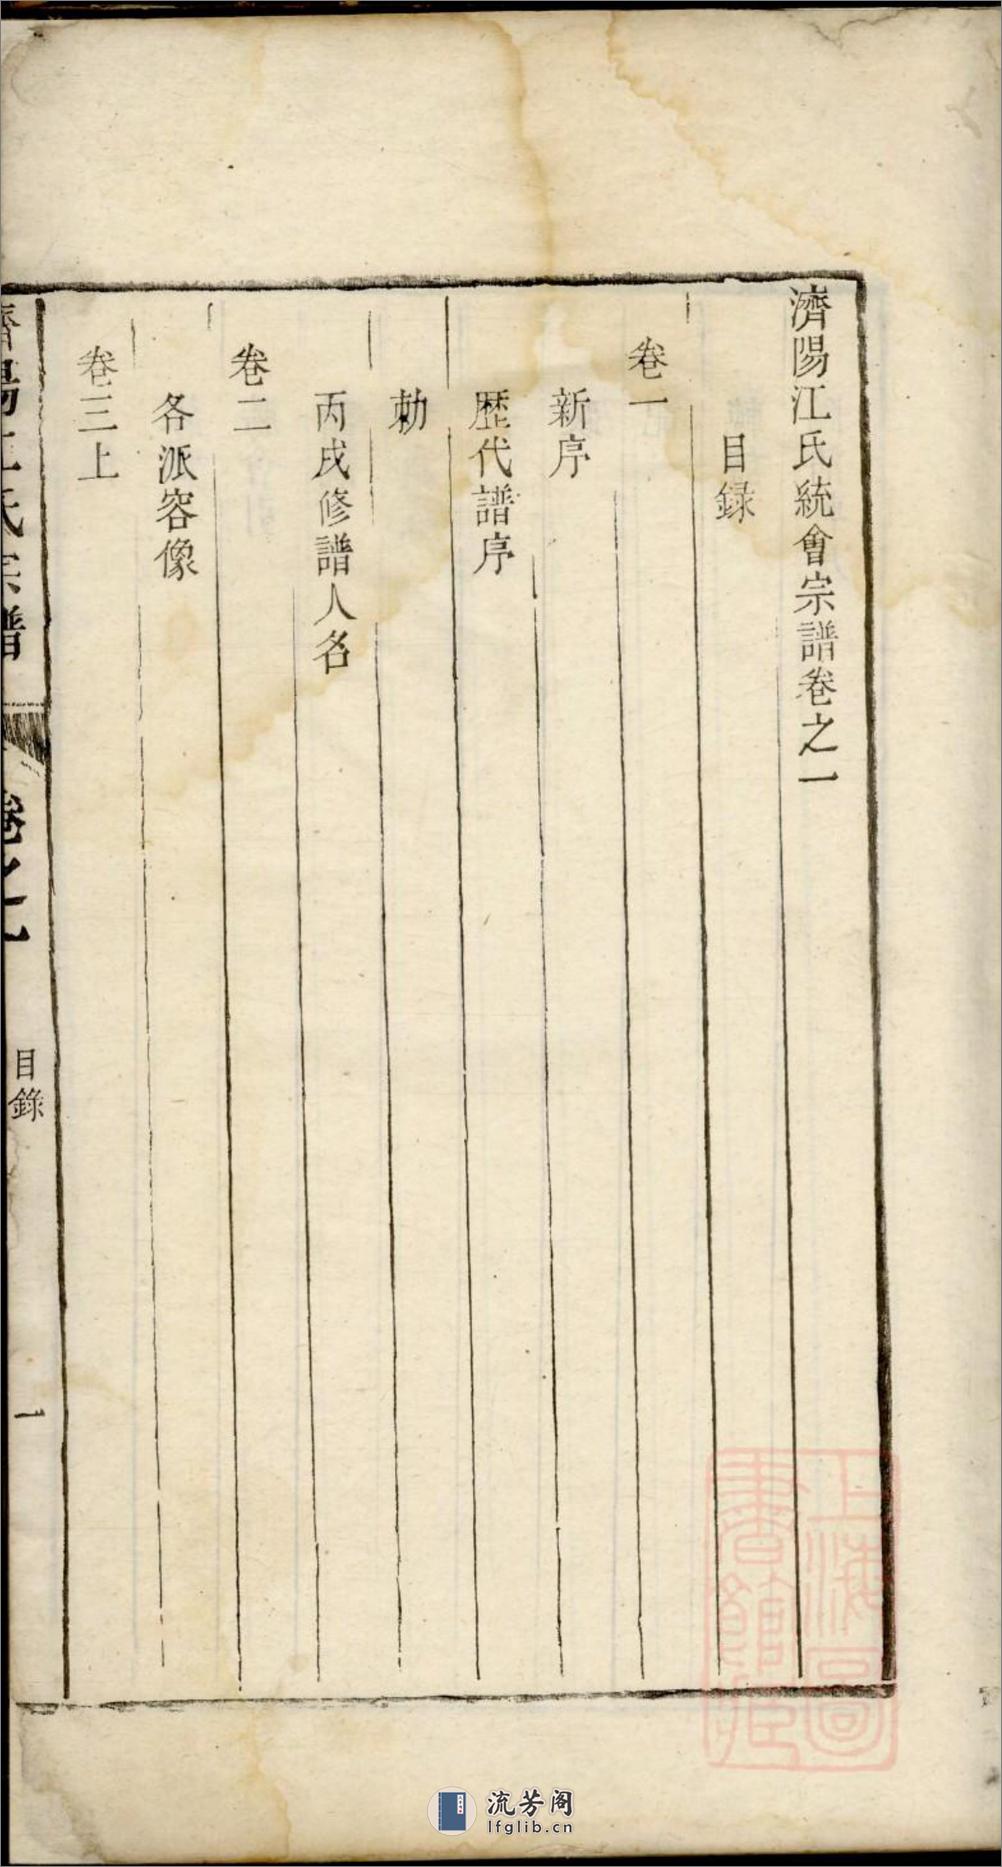 濟陽江氏統會宗譜卷之一
目録
卷一
新序
歴代譜序
勅
丙戌修譜人名
卷二
各派容像
卷三上
濟陽江氏宗譜
卷之一
目錄
一
上海圖
書館藏
流芳阁
lfglib.cn